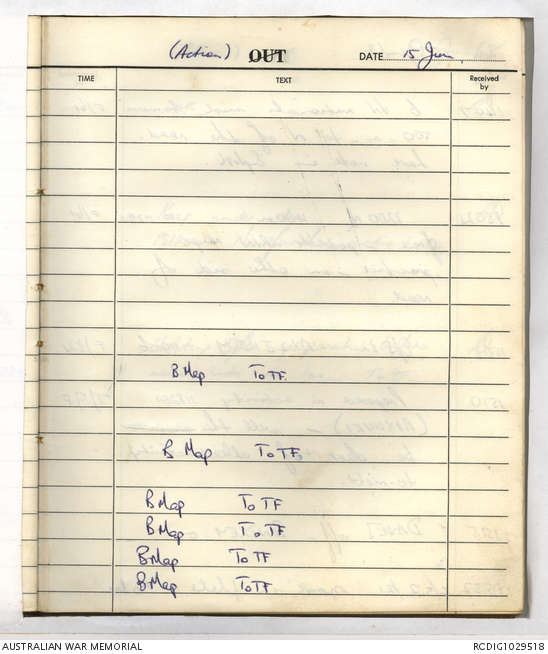 (Action) OUT DATE 15 Jun
TIME TEXT Received by
B Map To TF.
B Map To TF.
B Map To TF
B Map To TF
B Map To TF
B Map To TF
AUSTRALIAN WAR MEMORIAL RCDIG1029518